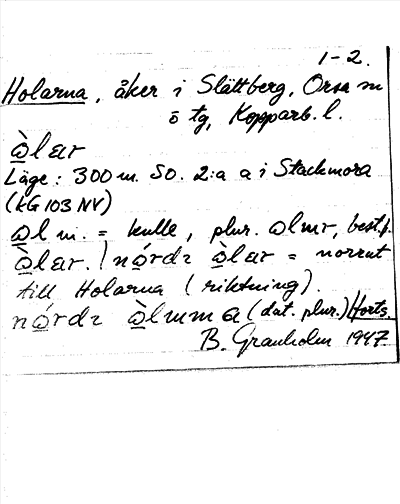 1-2.
Holarna, åker i Slättberg, Orsa sn
ö tg, Kopparb. l.
ὼlar
Läge: 300 m. SO. 2:a a i Stackmora
(KG 103 NV)
ὼl m. = kulle, plur. ωlαr, best.f.
ὼlar. | nǫ́rdı ὼlar = norrut
till Holarna (riktning).
nǫ́rdı ὼlmma (dat. plur.) Forts.
B. Granholm 1947